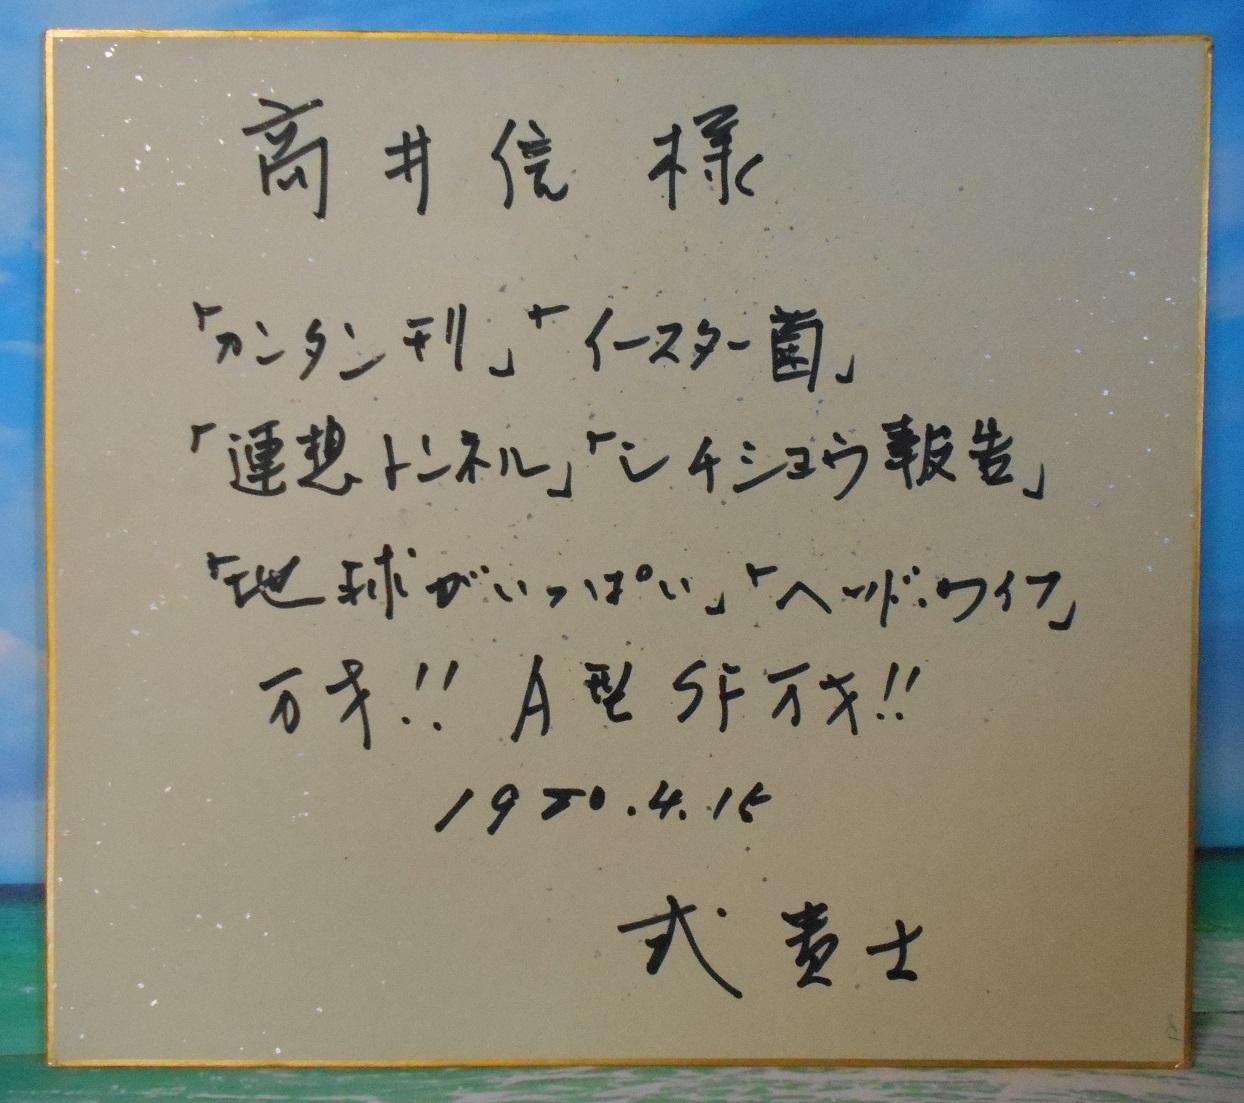 高井信 様
「カンタン刑」「イースター菌」
「連想トンネル」「シチショウ報告」
「地球がいっぱい」「ヘッド・ワイフ」
万才!! A型SF万才!!
1980.4.15
式貴士